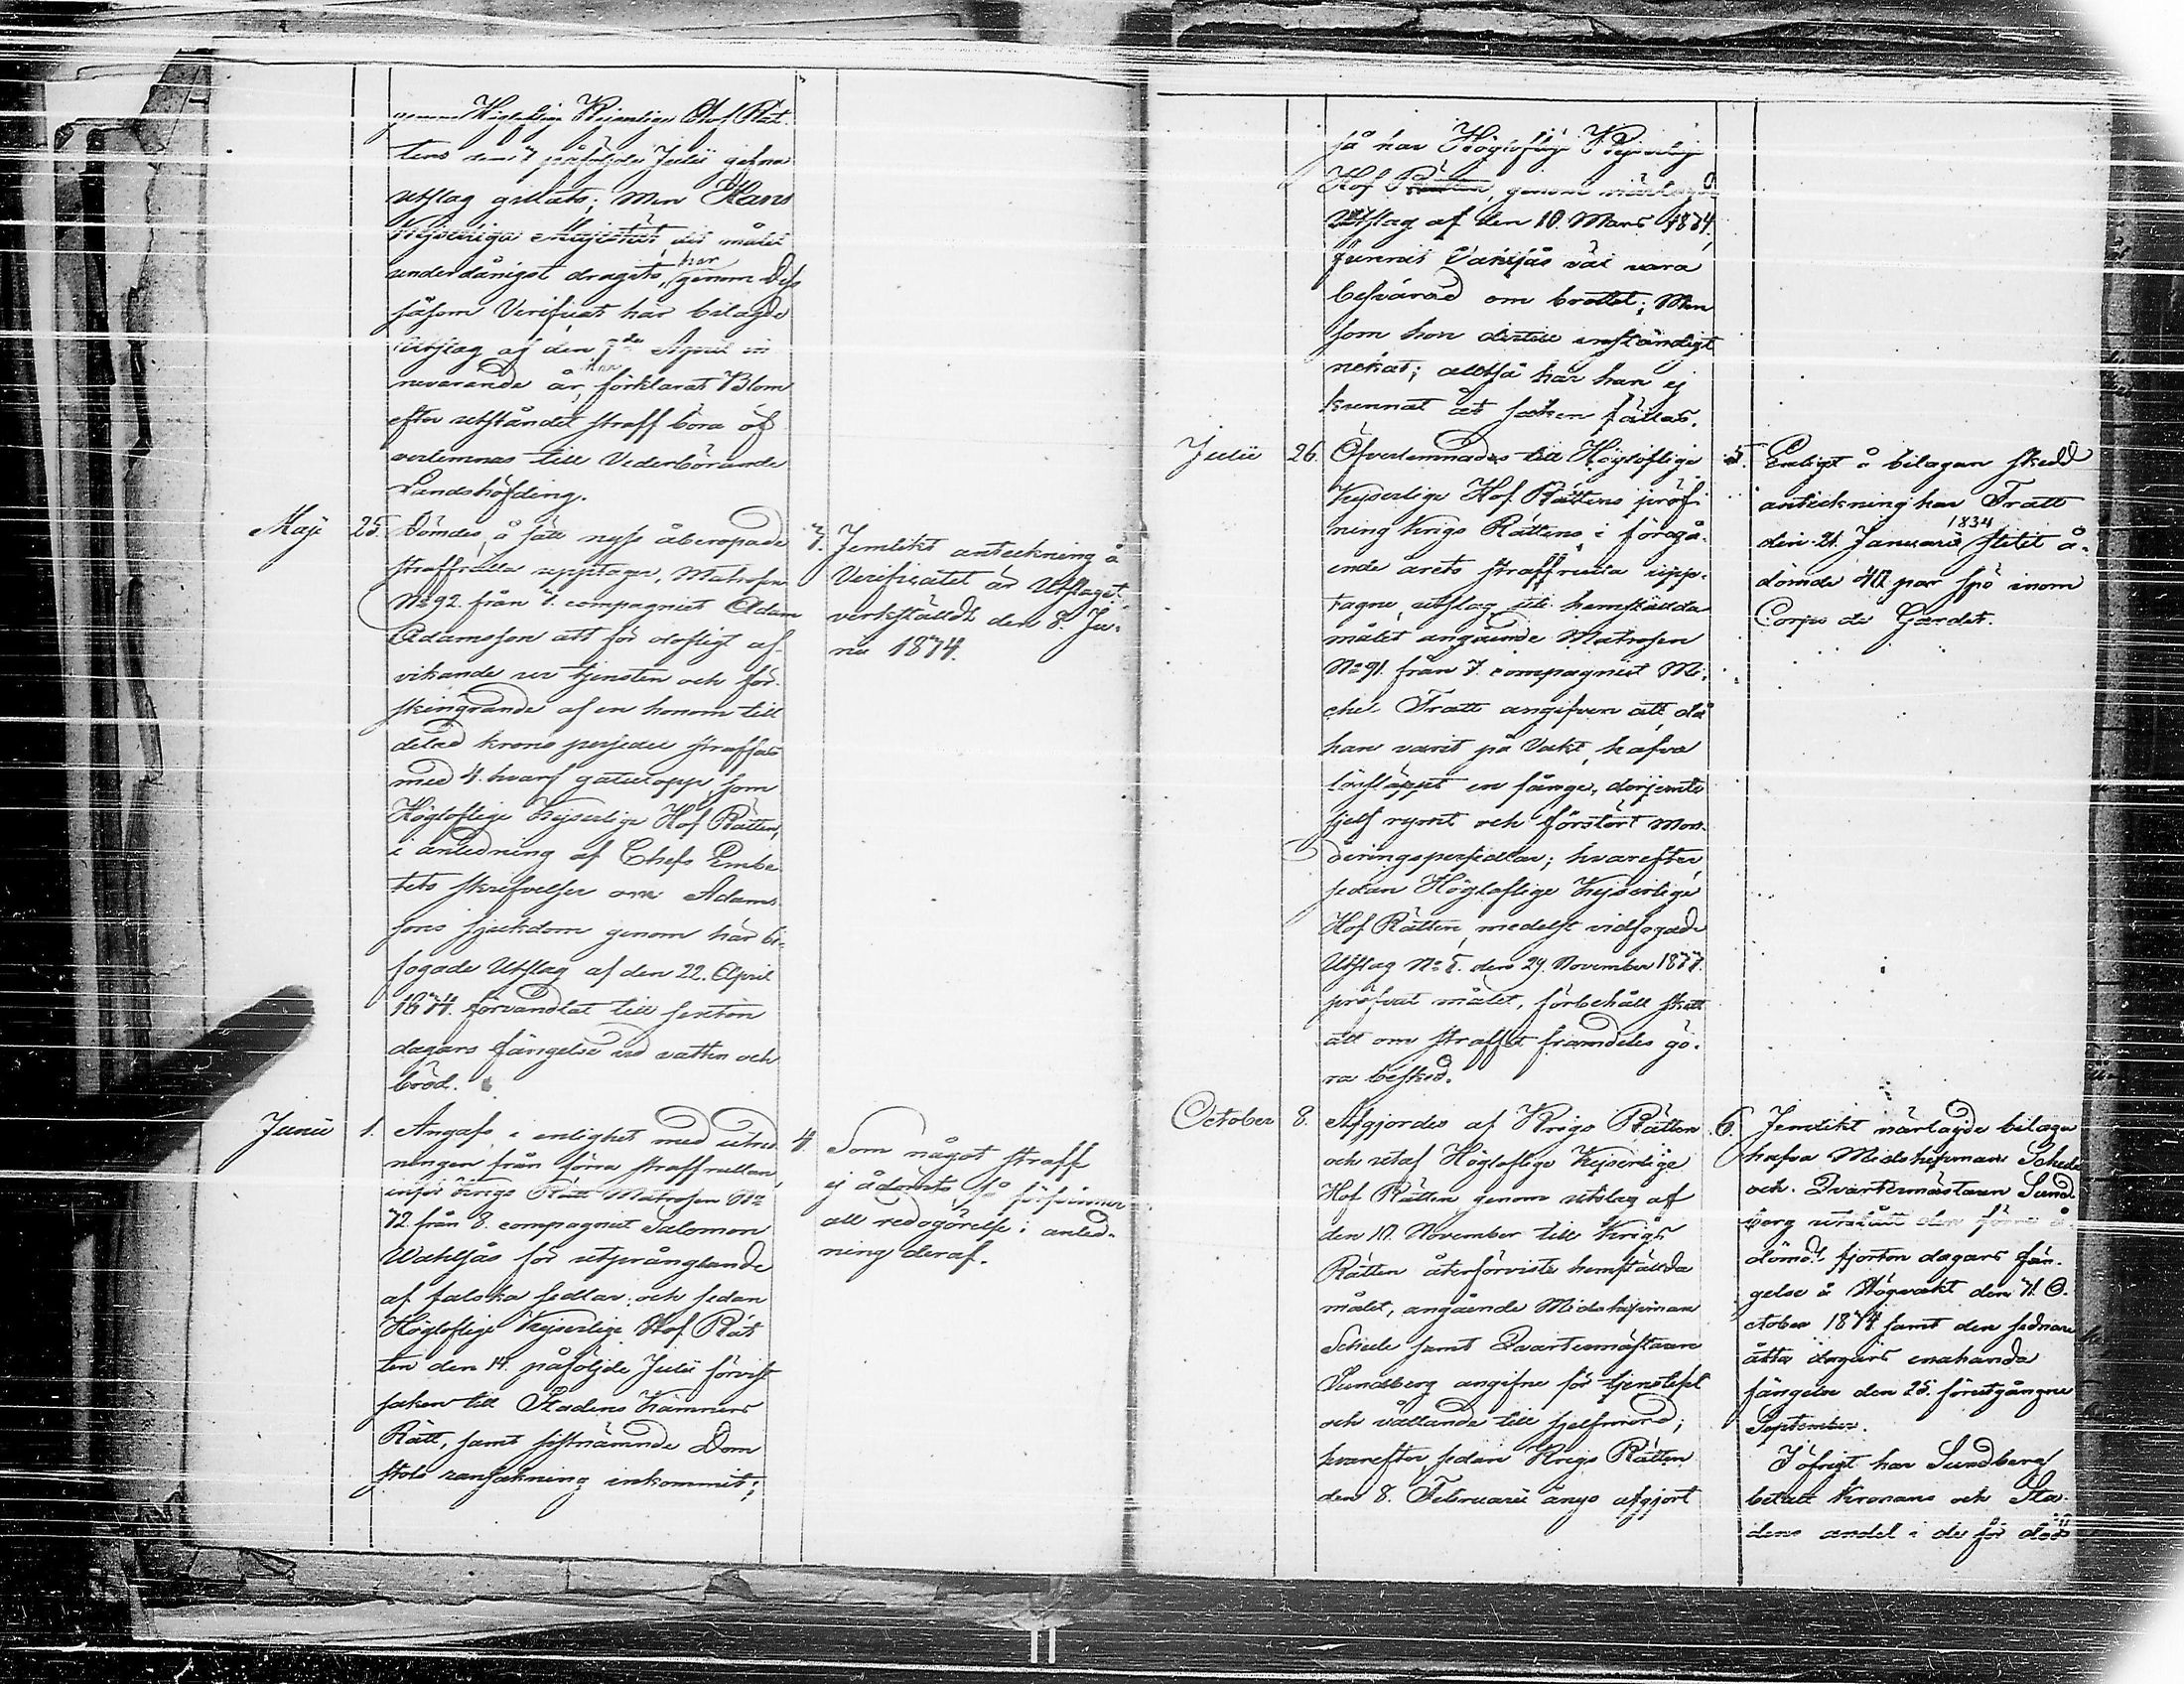 genom Högloflige Kejserlige Hof Rät-
tens den 7 påföljde Julii gifne
utslag gillats; Men Hans
Kejserliga Majestät det målet
underdånigst dragits, har genom dess
såsom Verificat här bilagde
Utslag af den 7de April in
nevarande år, förklarat Blom
efter utståndet straff böra öf
verlemnas till Vederbörande
Landshöfding.
Maji 25. Dömdes, å sätt nyss åberopade
straffrulla upptager, Matrosen
No 92. från 7. compagniet Adam
Adamsson att för olofligt af-
vikande ur tjensten och för-
skingrande af en honom till
delad krono persedel straffas
med 4. hvarf gatulopp, som
Högloflige Kejserlige Hof Rätten,
i anledning af Chefs Embe
tets skrifvelser om Adams
sons sjukdom genom här bi-
fogade Utslag af den 22. April
1874. förvandlat till sexton
dagars fängelse vid vatten och
bröd.
3. Jemlikt anteckning å
Verificatet är Utslaget
verkställdt den 8. Ju-
nii 1874.
Junii 1. Angafs, i enlighet med utred
ningen från förra straffrullan,
inför Krigs Rätt Matrosen No
72 från 8. compagniet Salomon
Wahlfås för utprånglande
af falska sedlar; och sedan
Högloflige Kejserlige Hof Rät
ten den 14. påföljde Julii förvist
saken till Stadens Kämners
Rätt, samt sistnämnde Dom
stols ransakning inkommit;
4. Som något straff
ej ådömts, så försvinner
all redogörelse i anled-
ning deraf.
så har Högloflige Kejserlige
Hof Rätten, genom närlagde
Utslag af den 10. Mars 1874.
funnit Wahlfås väl vara
besvärad om brottet; Men
som han dertill enständigt
nekat; alltså har han ej
kunnat åt saken fällas.
Julii 26. Öfverlemnades till Högloflige
Kejserlige Hof Rättens pröf-
ning Krigs Rättens i föregå-
ende årets straffrulla upp-
tagne, utslag uti hemställda
målet angående Matrosen
No 91. från 7. compagniet Mi-
chel Tratt angifven att då
han varit på Vakt, hafva
lössläppt en fånge, derjemte
sjelf rymt och förstört Mon-
deringspersedlar; hvarefter,
sedan Högloflige Kejserlige
Hof Rätten, medelst vidfogade
Utslag No 5. den 29. November 1877.
pröfvat målet, förbehåll skett
att om straffet framdeles gö-
ra besked.
5. Enligt å bilagan skedd
anteckning har Tratt
den 21. Januarii 1834 slitit å-
dömde 40 par spö inom
Corps de Gardet.
October 8. Afgjordes af Krigs Rätten
och utaf Högloflige Kejserlige
Hof Rätten genom utslag af
den 10. November till Krigs
Rätten återförviste hemställda
målet, angående Midshipman
Schele samt Quartermästaren
Sundberg angifne för tjenstefel
och vållande till sjelfmord;
hvarefter, sedan Krigs Rätten
den 8. Februarii änyo afgjort
6. Jemlikt närlagde bilaga
hafva Midshipman Schele
och Quartermästaren Sund
berg utstått den förre å
dömd fjorton dagars fän-
gelse å Högvakt den 11. O-
ctober 1874 samt den sednare
åtta dagars enahanda
fängelse den 25. förutgångne
September.
Jöfrigt har Sundberg
betalt Kronans och Sta
dens andel i de för död